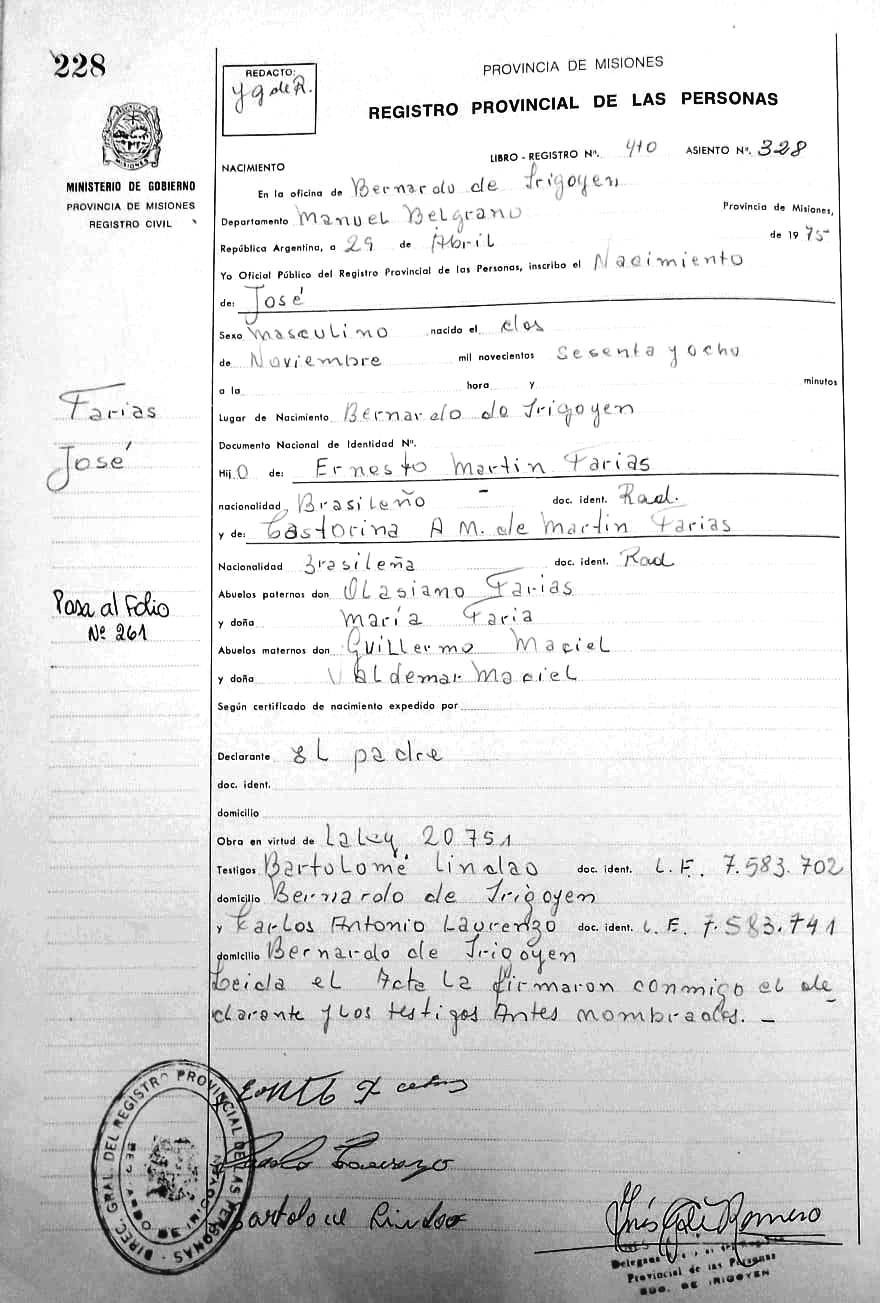 228
REDACTO:
y g de R.
PROVINCIA DE MISIONES
REGISTRO PROVINCIAL DE LAS PERSONAS
MINISTERIO DE GOBIERNO
PROVINCIA DE MISIONES
REGISTRO CIVIL
LIBRO - REGISTRO Nº. 410 ASIENTO Nº. 328
NACIMIENTO
En la oficina de Bernardo de Irigoyen
Departamento Manuel Belgrano Provincia de Misiones,
República Argentina, a 29 de Abril de 1975
Yo Oficial Público del Registro Provincial de las Personas, inscribo el Nacimiento
de: José
Sexo masculino nacido el dos
de Noviembre mil novecientos sesenta y ocho
a la hora y minutos
Farias
José
Lugar de Nacimiento Bernardo de Irigoyen
Documento Nacional de Identidad Nº.
Hijo de: Ernesto Martin Farias
nacionalidad Brasileño - doc. ident. Rad.
y de: Castorina A M. de Martin Farias
Nacionalidad Brasileña doc. ident. Rad
Abuelos paternos don Olasiano Farias
y doña María Faria
Pasa al Folio
Nº 261
Abuelos maternos don Guillermo Maciel
y doña Valdemar Maciel
Según certificado de nacimiento expedido por
Declarante El padre
doc. ident.
domicilio
Obra en virtud de La Ley 20.751
Testigos Bartolomé Lindao doc. ident. L.E. 7.583.702
domicilio Bernardo de Irigoyen
y Karlos Antonio Laurenzo doc. ident. L.E. 7.583.741
domicilio Bernardo de Irigoyen
Leida el Acta La firmaron conmigo el de
clarante y los testigos Antes nombrados. -
DIREC. GRAL. DEL REGISTRO PROVINCIAL DE LAS PERSONAS
Inés G. de Romero
Delegada
Provincial de las Personas
BDO. DE IRIGOYEN